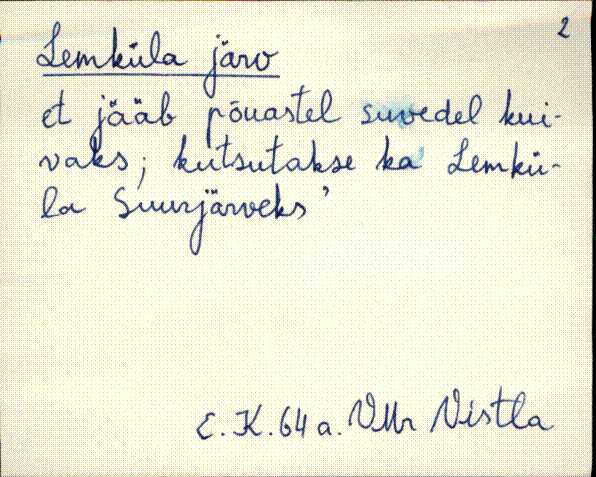 2
Lemküla järv
et jääb põuastel suvedel kui-
vaks; kutsutakse ka Lemkü-
la Suurjärveks’
E. K. 64 a. VMr Vistla